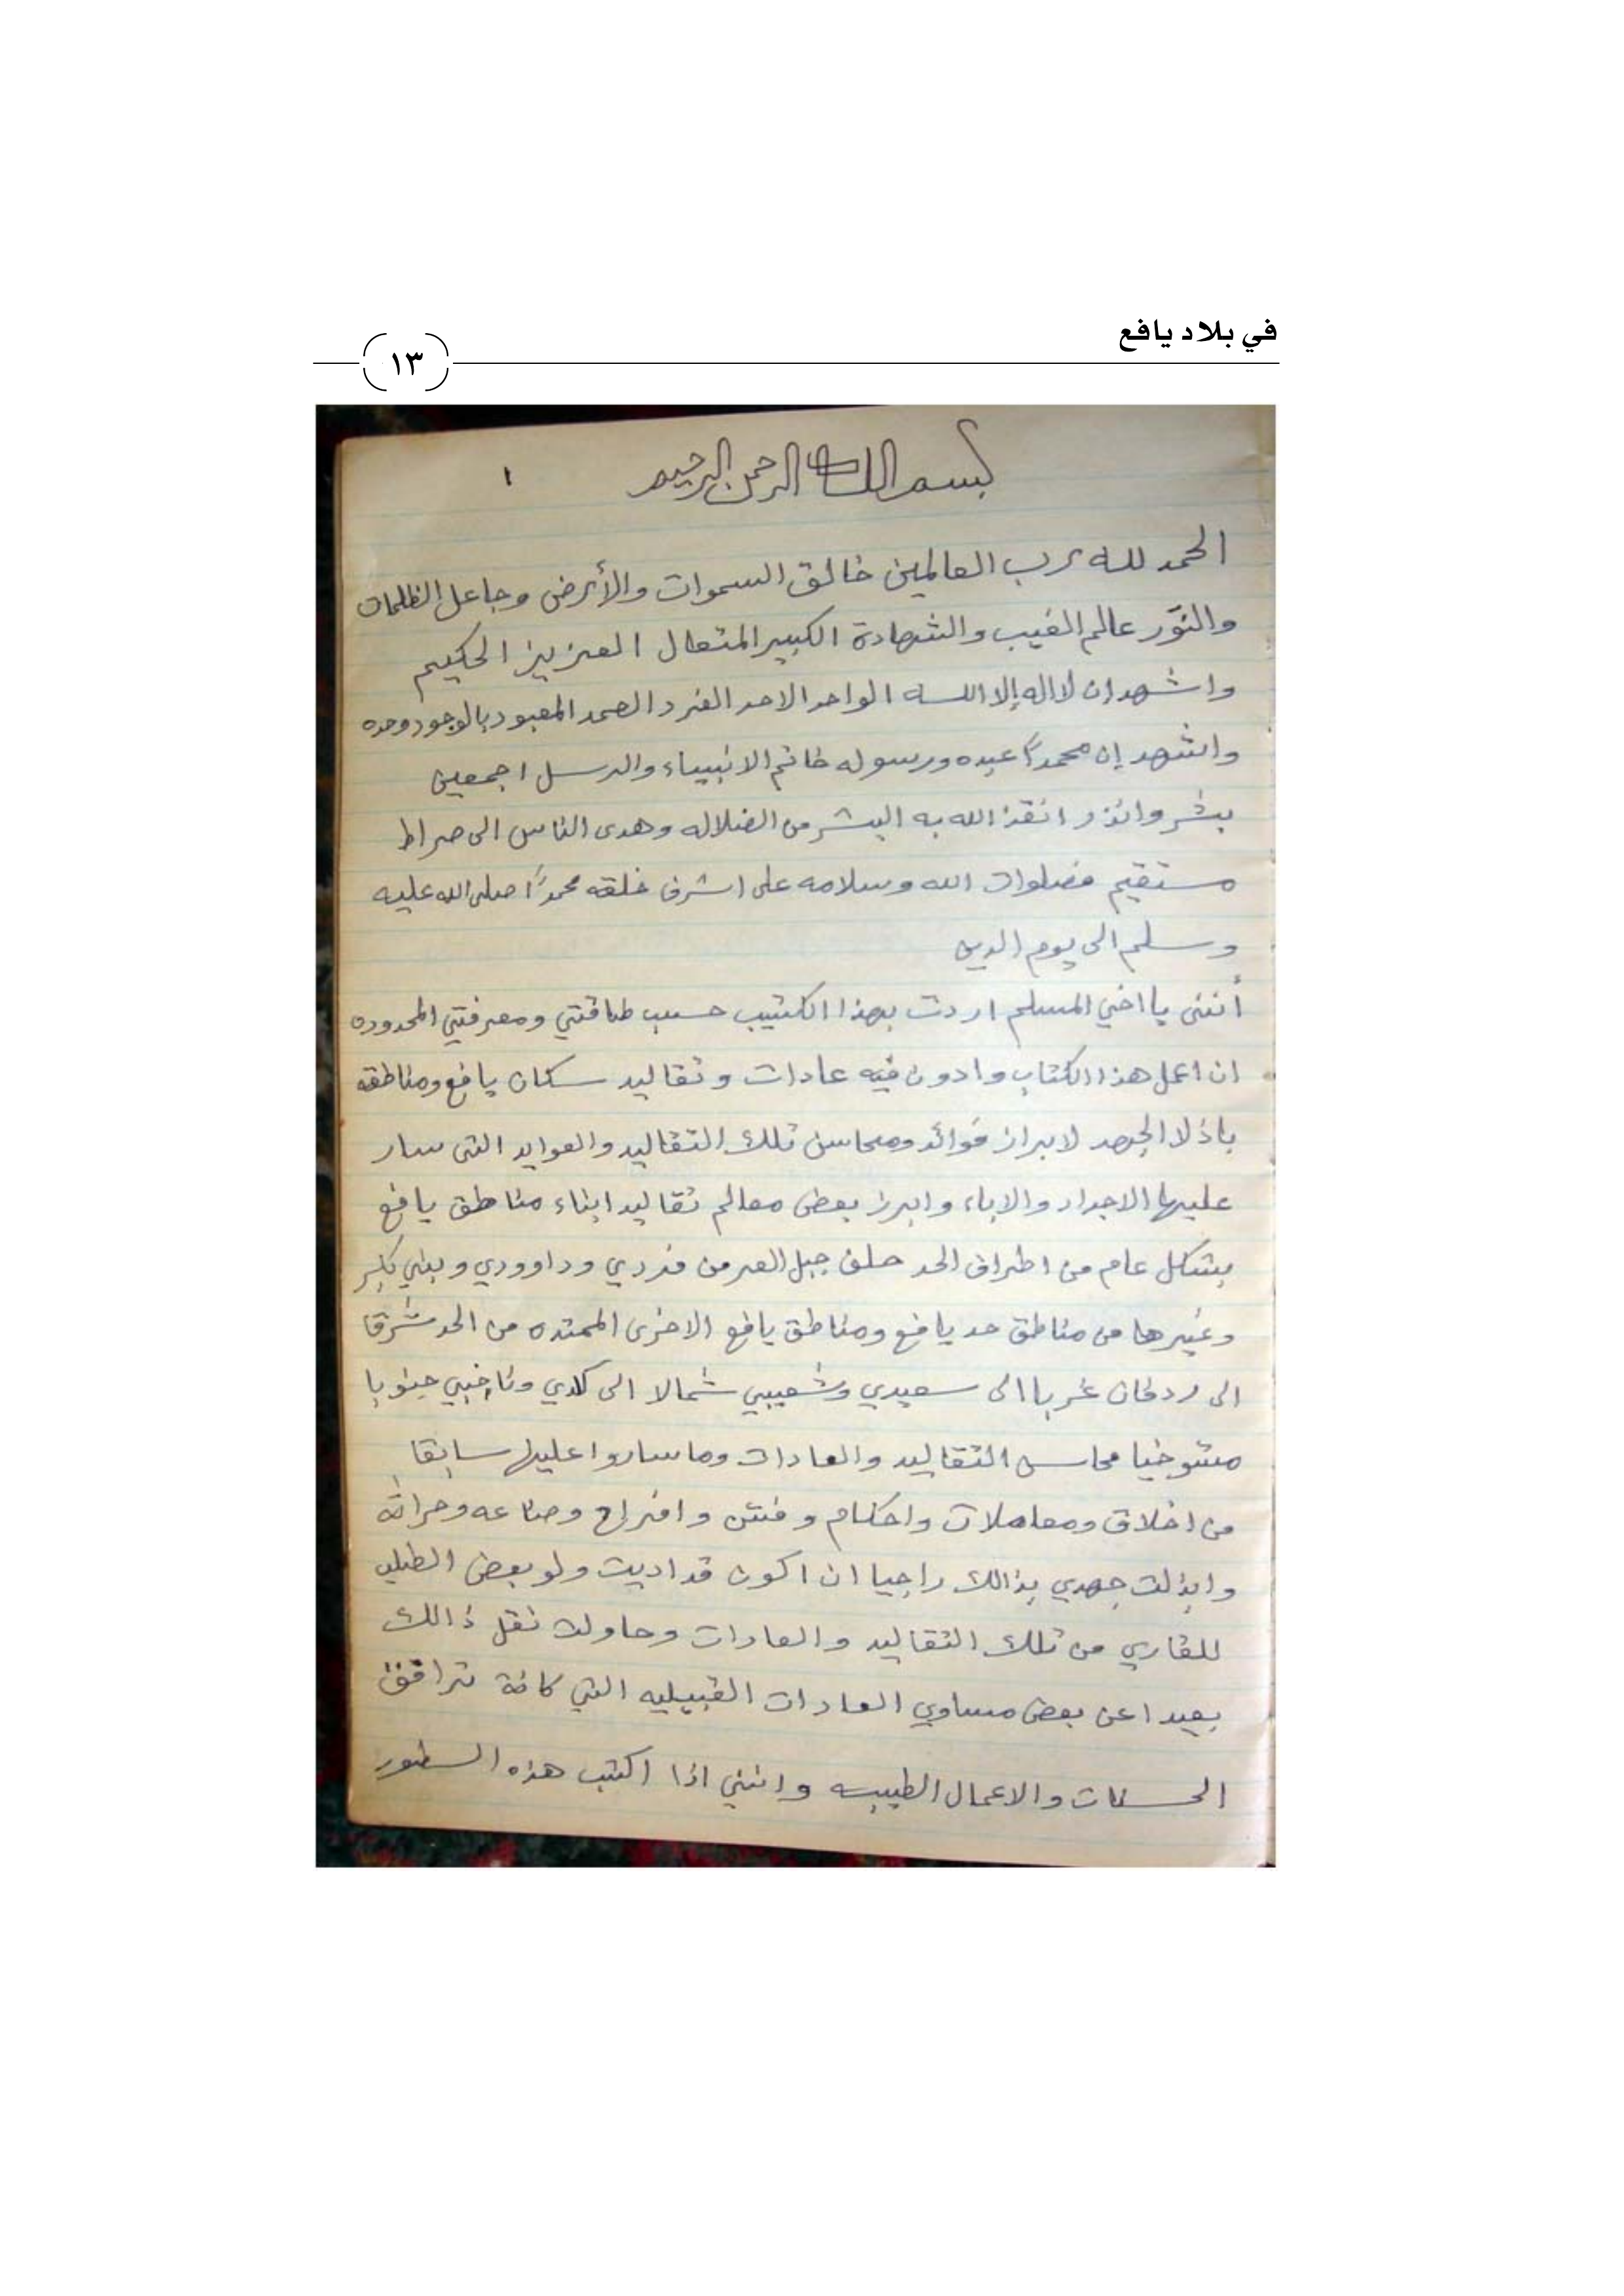 في بلاد يافع
١٣
بسم الله الرحمن الرحيم
١
الحمد لله رب العالمين خالق السموات والأرض وجاعل الظلمات
والنور عالم الغيب والشهادة الكبير المتعال العزيز الحكيم
واشهد ان لااله إلا الله الواحد الاحد الفرد الصمد المعبود بالوجود وحده
واشهد إن محمداً عبده ورسوله خاتم الانبياء والرسل اجمعين
بشر وانذر انقذ الله به البشر من الضلاله وهدى الناس الى صراط
مستقيم فصلوات الله وسلامه على اشرف خلقه محمداً صلى الله عليه
وسلم الى يوم الدين
أنني يا اخي المسلم اردت بهذا الكتيب حسب طاقتي ومعرفتي المحدوده
ان اعمل هذا الكتاب وادون فيه عادات وتقاليد سكان يافع ومناطقه
باذلا الجهد لابراز فوائد ومحاسن تلك التقاليد والعوايد التى سار
عليها الاجداد والاباء وابرز بعض معالم تقاليد ابناء مناطق يافع
بشكل عام من اطراف الحد خلف جبل العر من فردي وداوودي وبني بكر
وغيرها من مناطق حد يافع ومناطق يافع الاخرى الممتده من الحد شرقا
الى ردفان غربا الى سعيدي وشعيبي شمالا الى كلدي وناخبي جنوبا
متوخيا محاسن التقاليد والعادات وما ساروا عليها سابقا
من اخلاق ومعاملات واحكام وفتن وافراح وصناعه وحراثه
وابذلت جهدي بذالك راجيا ان اكون قد اديت ولو بعض الطلب
للقاري من تلك التقاليد والعادات وحاولت نقل ذالك
بعيدا عن بعض مساوي العادات القبيليه التي كانة ترافق
الحسنات والاعمال الطيبه وانني اذا اكتب هذه السطور